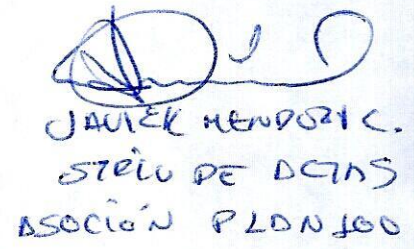 JAVIER MENDOZA C.
STRIO DE ACTAS
ASOCIÓN PLAN 100